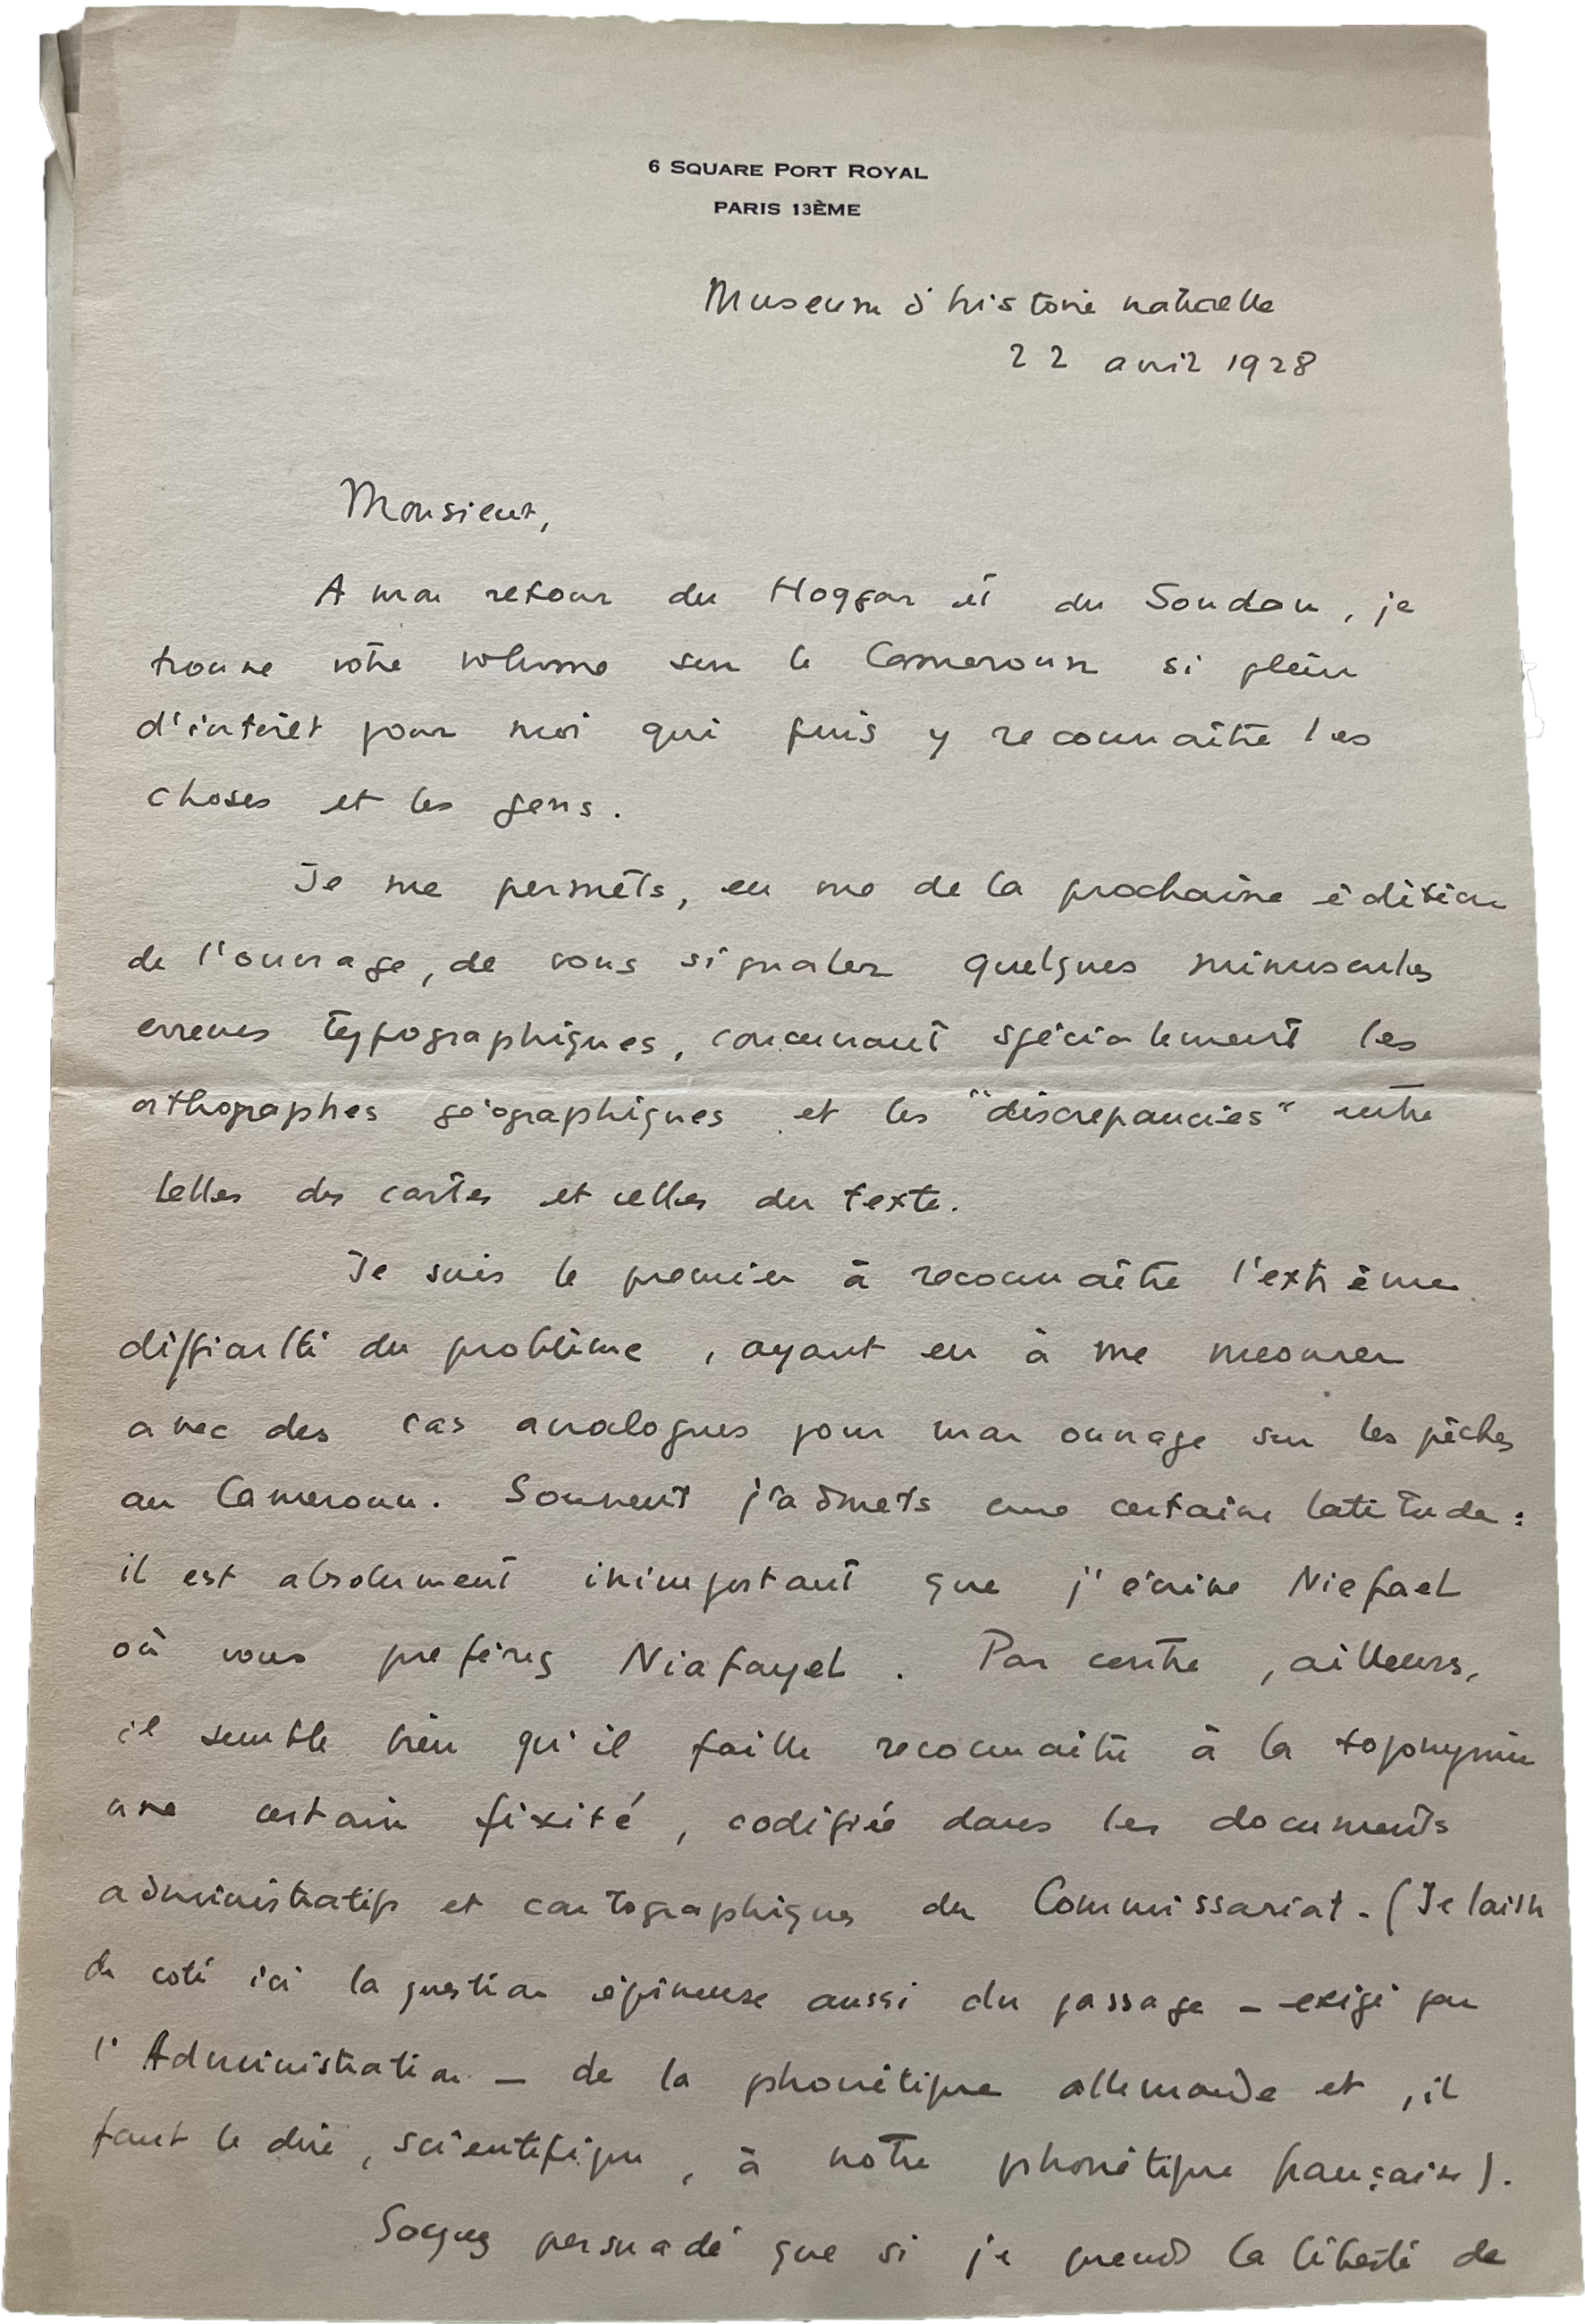 6 SQUARE PORT ROYAL
PARIS 13ÈME
Museum d'histoire naturelle
22 avril 1928
Monsieur,
A mon retour du Hoggar et du Soudan, je
trouve votre volume sur le Cameroun si plein
d'intérêt pour moi qui puis y reconnaître les
choses et les gens.
Je me permets, en vue de la prochaine édition
de l'ouvrage, de vous signaler quelques minuscules
erreurs typographiques, concernant spécialement les
orthographes géographiques et les "discrepancies" entre
celles des cartes et celles du texte.
Je suis le premier à reconnaître l'extrême
difficulté du problème, ayant eu à me mesurer
avec des cas analogues pour mon ouvrage sur les pêches
au Cameroun. Souvent j'admets une certaine latitude :
il est absolument inimportant que j'écrive Niefael
où vous préférez Niafayel. Par contre, ailleurs,
il semble bien qu'il faille reconnaître à la toponymie
une certain fixité, codifiée dans les documents
administratifs et cartographiques du Commissariat. (Je laisse
de coté ici la question épineuse aussi du passage – exigé par
l'Administration – de la phonétique allemande et, il
faut le dire, scientifique, à notre phonétique française).
Soyez persuadé que si je prends la liberté de